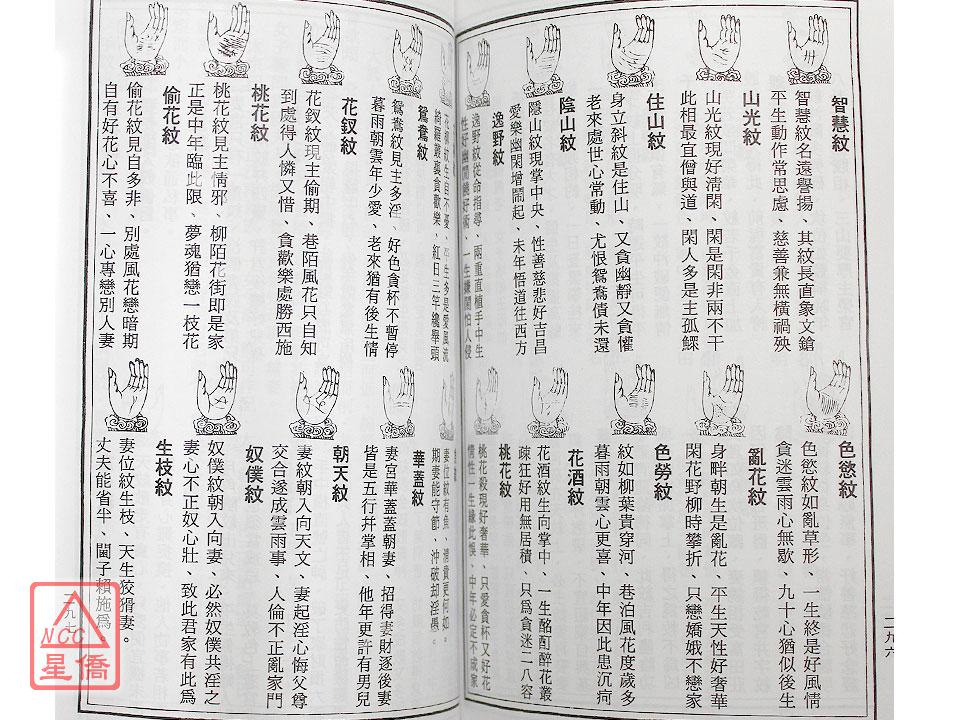 智慧紋
智慧紋名遠譽揚、其紋長直象文鎗
平生動作常思慮、慈善兼無橫禍殃
山光紋
山光紋現好清閑、閑是閑非兩不干
此相最宜僧與道、閑人多是主孤鰥
住山紋
身立斜紋是住山、又貪幽靜又貪懽
老來處世心常動、尤恨鴛鴦債未還
隱山紋現掌中央、性善慈悲好吉昌
愛樂幽閑增鬧起、末年悟道往西方
逸野紋
逸野紋從命指尋、兩重直植手中生
鴛鴦紋
鴛鴦紋見主多淫、好色貪杯不暫停
暮雨朝雲年少愛、老來猶有後生情
花釵紋
花釵紋現主偷期、巷陌風花只自知
到處得人憐又惜、貪歡樂處勝西施
桃花紋
桃花紋見主情邪、柳陌花街即是家
正是中年臨此限、夢魂猶戀一枝花
偷花紋
偷花紋見自多非、別處風花戀暗期
自有好花心不喜、一心專戀別人妻
色慾紋
色慾紋如亂草形、一生終是好風情
貪迷雲雨心無歇、九十心猶似後生
亂花紋
身畔朝生是亂花、平生天性好奢華
閑花野柳時攀折、只戀嬌娥不戀家
色勞紋
紋如柳葉貴穿河、巷泊風花度歲多
暮雨朝雲心更喜、中年因此患沉疴
花酒紋
花酒紋生向掌中、一生酩酊醉花叢
疎狂好用無居積、只為貪迷二八容
桃花紋
桃花殺現好奢華、只愛貪杯又好花
情性一生緣此悞、中年必定不成家
華蓋紋
妻宮華蓋蓋朝妻、招得妻財逐後妻
皆是五行并掌相、他年更許有男兒
朝天紋
妻紋朝入向天文、妻起淫心悔父尊
交合遂成雲雨事、人倫不正亂家門
奴僕紋
奴僕紋朝入向妻、必然奴僕共淫之
妻心不正奴心壯、致此君家有此為
生枝紋
妻位紋生枝、天生狡猾妻。
丈夫能省半、闔子賴施為。
二九六
二九七
NCC
星僑